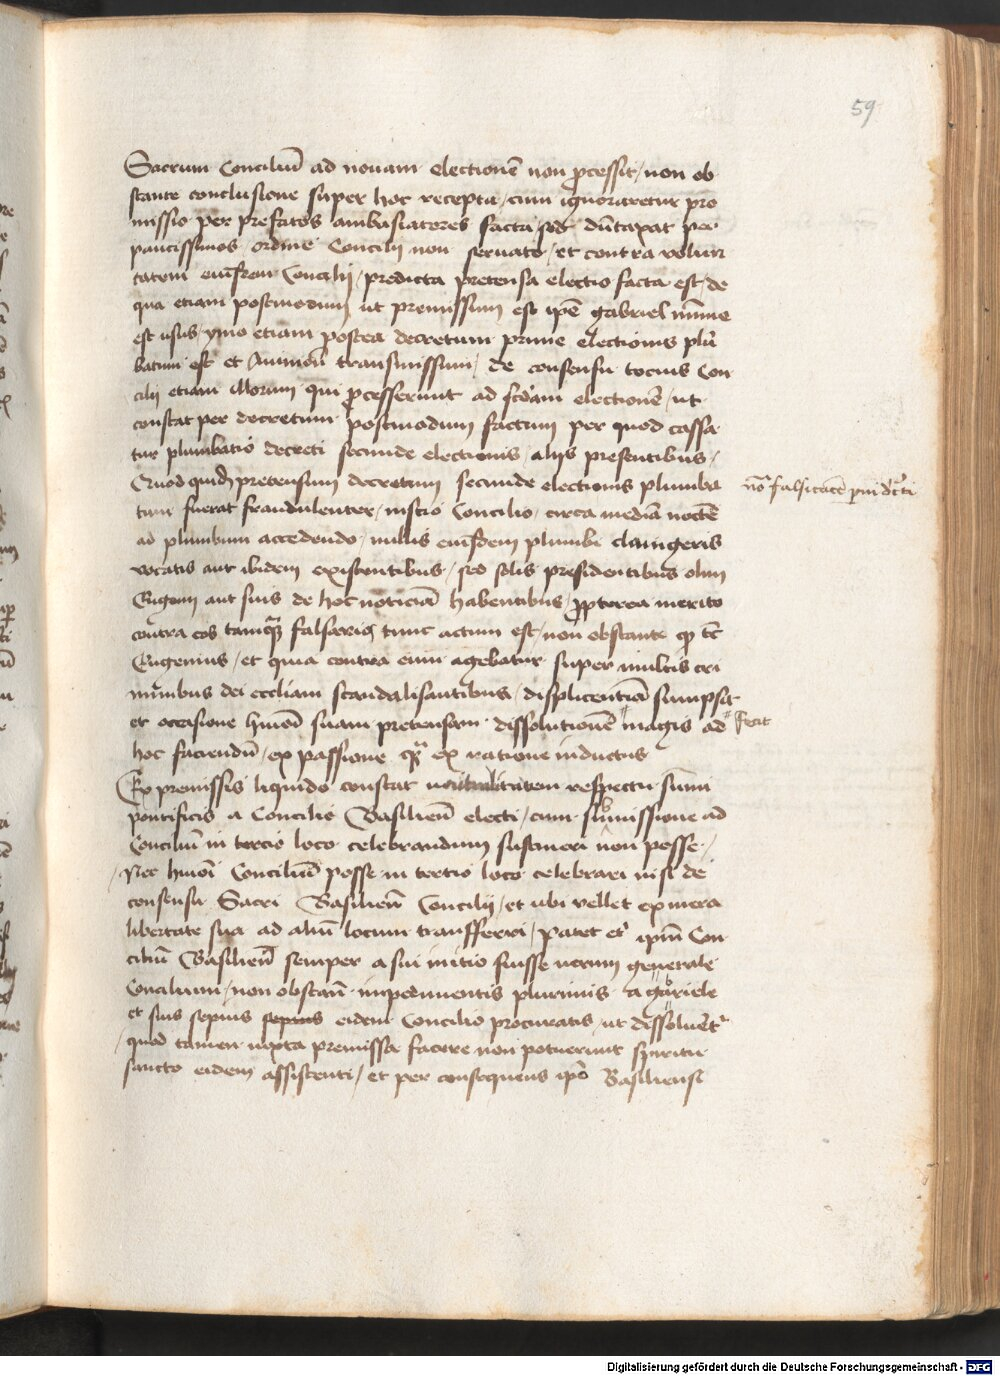 59
Sacrum Conciliū ad nouam electionē non ꝓcessit / non ob
stante conclusione super hoc recepta / cum ignoraretur pro
missio per prefatos ambasiatores facta / sed dūtaxat per
paucissimos ordine Concilij non seruato / et contra volun
tatem eiusdem Concilij / predicta pretensa electio facta est / de
qua etiam postmodum ut premissum est ipē gabriel mīme
est usus / ymo etiam postea decretum prime electionis plū
batum est et Auinionē transmissum / de consensu tocius Con
cilij etiam illorum qui ꝓcesserunt ad scdam electionē / ut
constat per decretum postmodum factum per quod cassa
tur plumbatio decreti secunde electionis / alijs presentibus /
Quod quidē pretensum decretum secunde electionis plumba
tum fuerat fraudulenter / inscio Concilio / circa mediā noctē
ad plumbum accedendo / nullis eiusdem plumbi clauigeris
vocatis aut ibidem existentibus / sed solis presidentibus olim
Eugenij aut suis de hoc noticiā habentibus / ꝓpterea merito
contra eos tamqꝫ falsarios tunc actum est / non obstante
Eugenius / et quia contra eum agebatur super multis cri
minibus dei eccliam scandalisantibus / displicentiā sumpsit
et occasione hmoī suam pretensam dissolutionē magis ad
fecit
hoc faciendū / ex passione qꝫ ex ratione inductus
Ex premissis liquido constat neutralitatem respectu sum̄i
pontificis a Concilio Basilien̄ electi / cum submissione ad
Conciliū in tercio loco celebrandum sustineri non posse /
Nec hmoī Conciliū posse in tertio loco celebrari nisi de
consensu Sacri Basilien̄ Concilij / et ubi vellet ex mera
libertate sua ad aliū locum transfferri / patet et ipm̄ Con
ciliū Basilien̄ semper a sui initio fuisse uerum generale
Concilium / non obstan̄ impedimentis plurimis a gabriele
et suis sepius sepius eidem Concilio procuratis / ut dissoluet
quod tamen iuxta premissa facere non potuerunt spiritu
sancto eidem assistenti / et per consequens ipō Basiliensi
Digitalisierung gefördert durch die Deutsche Forschungsgemeinschaft - DFG